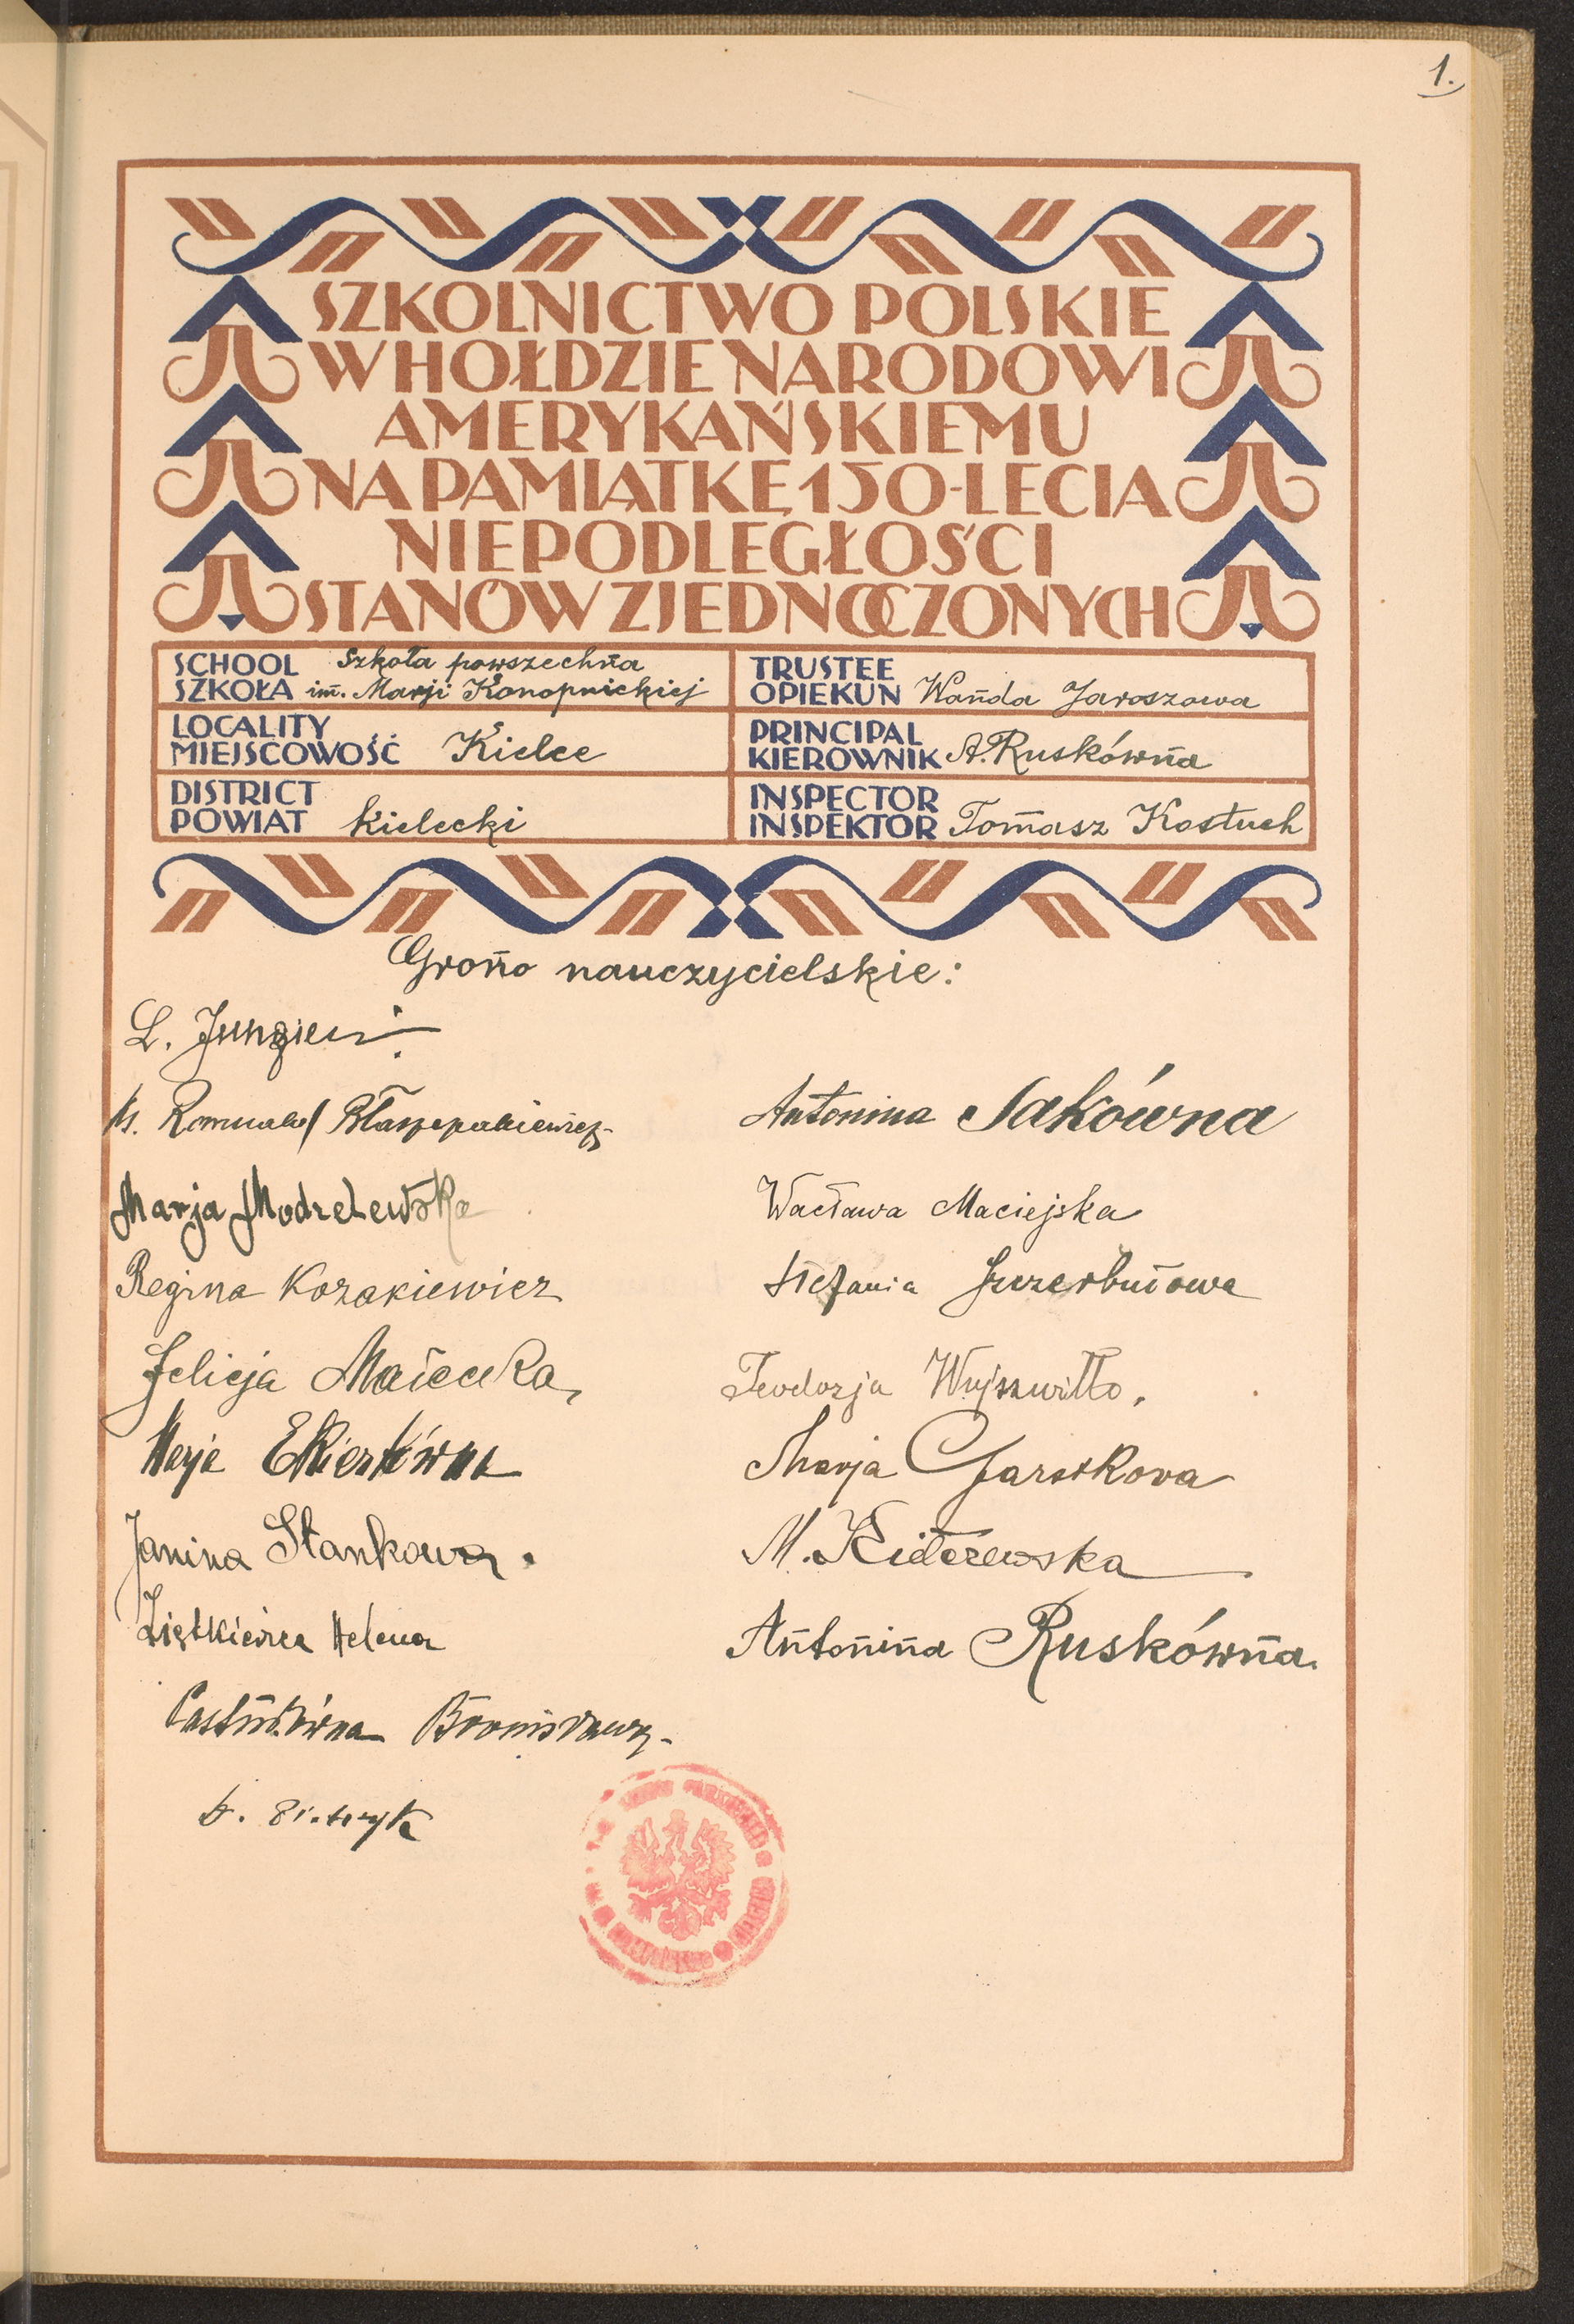 1.
SZKOLNICTWO POLSKIE
W HOŁDZIE NARODOWI
AMERYKAŃSKIEMU
NA PAMIĄTKĘ 150-LECIA
NIEPODLEGŁOŚCI
STANÓW ZJEDNOCZONYCH
SCHOOL Szkoła powszechna
SZKOŁA im. Marji Konopnickiej
TRUSTEE
OPIEKUN Wanda Jaroszowa
LOCALITY
MIEJSCOWOŚĆ Kielce
PRINCIPAL
KIEROWNIK A. Ruskówna
DISTRICT
POWIAT Kielecki
INSPECTOR
INSPEKTOR Tomasz Kostuch
Grono nauczycielskie:
L.
Romuald Błaszczakiewicz
Marja Modzelewska
Regina Kozakiewicz
Felicja Małecka
Marja Ekiertówna
Janina Stankowa.
Ziętkiewicz Helena
Pastuszkówna Bronisława
Antonina Sakówna
Wacława Maciejska
Stefania Szczerbutowa
Teodozja Wujszwiłło.
Marja
M.
Antonina Ruskówna.